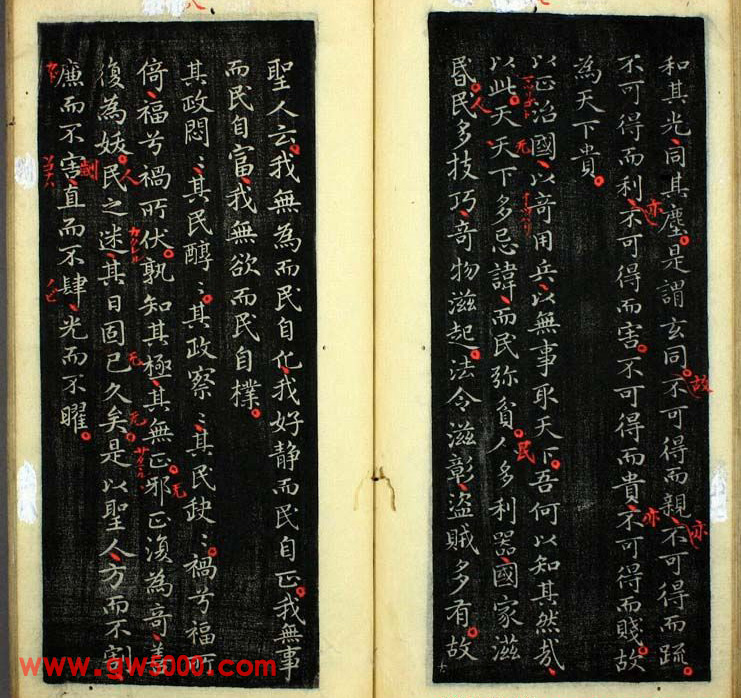 和其光同其塵是謂玄同不可得而親不可得而疏
不可得而利不可得而害不可得而貴不可得而賤故
為天下貴
以正治國以奇用兵以無事取天下吾何以知其然哉
以此天天下多忌諱而民弥貧人多利器國家滋
昬民多技巧奇物滋起法令滋彰盜賊多有故
聖人云我無為而民自化我好静而民自正我無事
而民自富我無欲而民自樸
其政悶〻其民醇〻其政察〻其民缺〻禍兮福所
倚福兮禍所伏孰知其極其無正邪正復為奇善
復為妖民之迷其日固已久矣是以聖人方而不割
廉而不害直而不肆光而不曜
www.gw5000.com